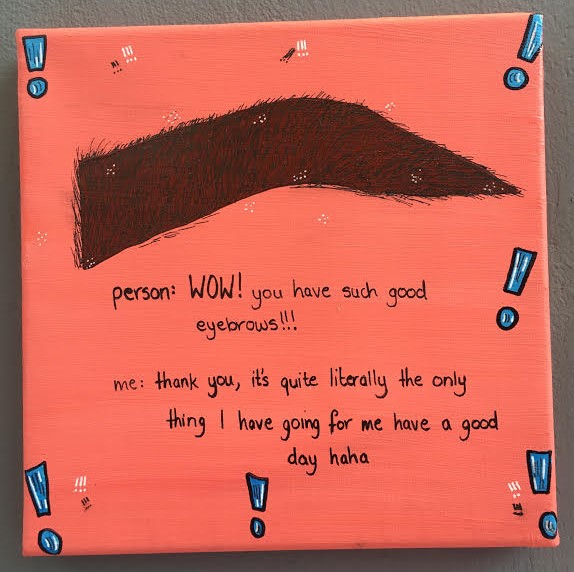 person: WOW! you have such good
eyebrows!!!
me: thank you, it's quite literally the only
thing I have going for me have a good
day haha